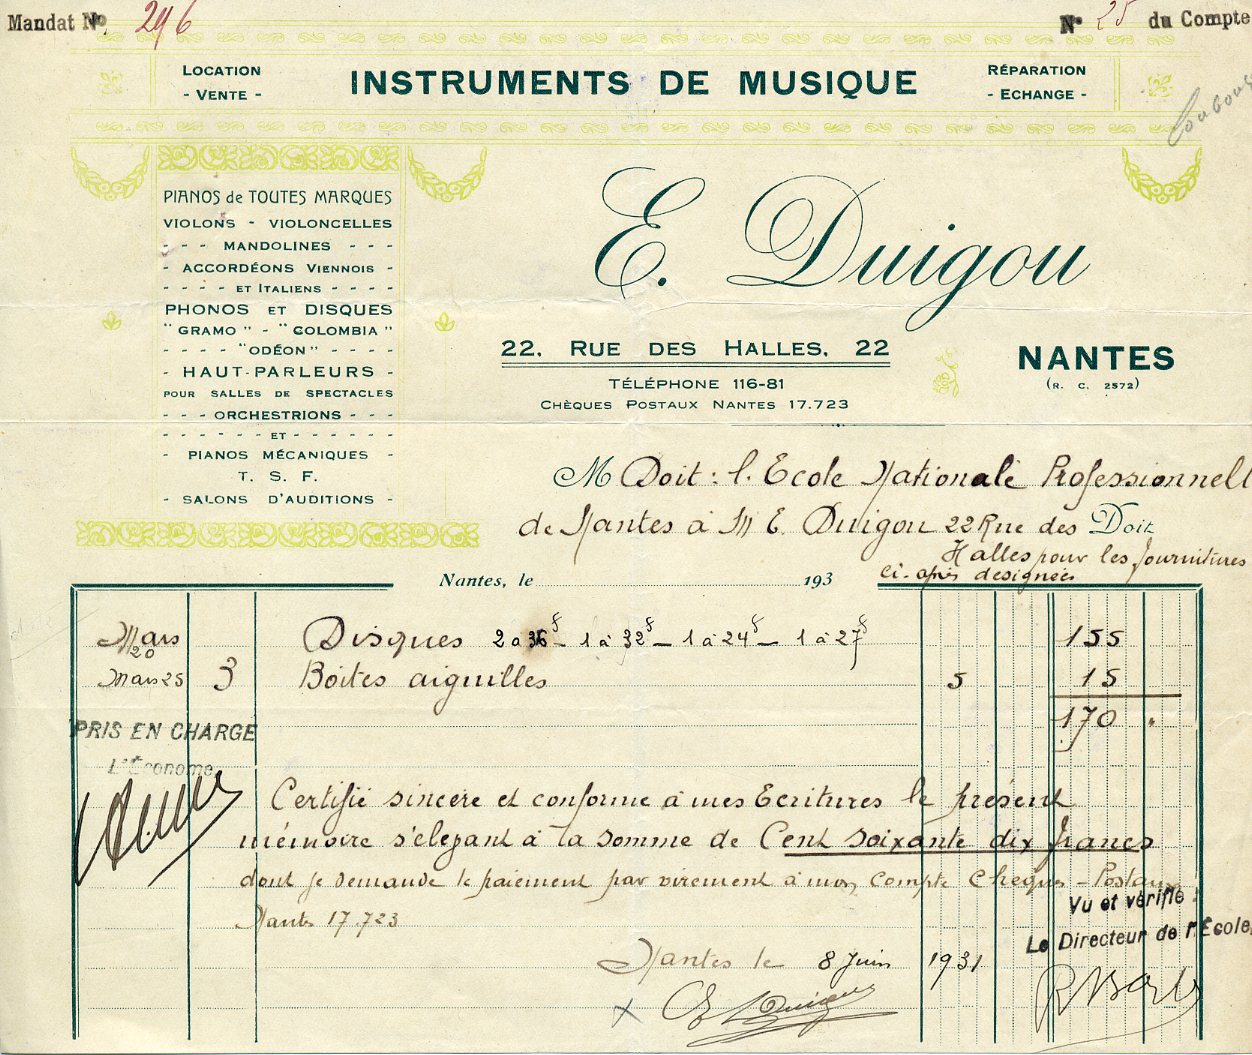 Mandat No. 296
No 25 du Compte
LOCATION
- VENTE -
INSTRUMENTS DE MUSIQUE
RÉPARATION
- ECHANGE -
PIANOS de TOUTES MARQUES
VIOLONS - VIOLONCELLES
- - - MANDOLINES - - -
- ACCORDÉONS VIENNOIS -
- - - - ET ITALIENS - - - -
PHONOS ET DISQUES
"GRAMO" - "COLOMBIA"
- - - - "ODÉON" - - - -
- HAUT-PARLEURS -
POUR SALLES DE SPECTACLES
- - - ORCHESTRIONS - - -
- - - - - - ET - - - - - -
- PIANOS MÉCANIQUES -
T. S. F.
- SALONS D'AUDITIONS -
E. Duigou
22, RUE DES HALLES, 22
NANTES
(R. C. 2572)
TÉLÉPHONE 116-81
CHÈQUES POSTAUX NANTES 17.723
M Doit : l'Ecole Nationale Professionnell
de Nantes à M E. Duigou 22 Rue des Doit
Halles pour les fournitures
ci-après designées
Nantes, le 193
Mars 20 Disques 2 à 36f - 1 à 32f - 1 à 24f - 1 à 27f 155
Mars 25 3 Boites aiguilles 5 15
170 "
PRIS EN CHARGE
L'Économe
Certifié sincère et conforme à mes Ecritures le présent
mémoire s'élevant à la somme de Cent soixante dix francs
dont je demande le paiement par virement à mon compte Cheques-Postaux
Nantes 17.723
Vu et vérifié :
Le Directeur de l'Ecole,
Nantes le 8 Juin 1931
E Duigou